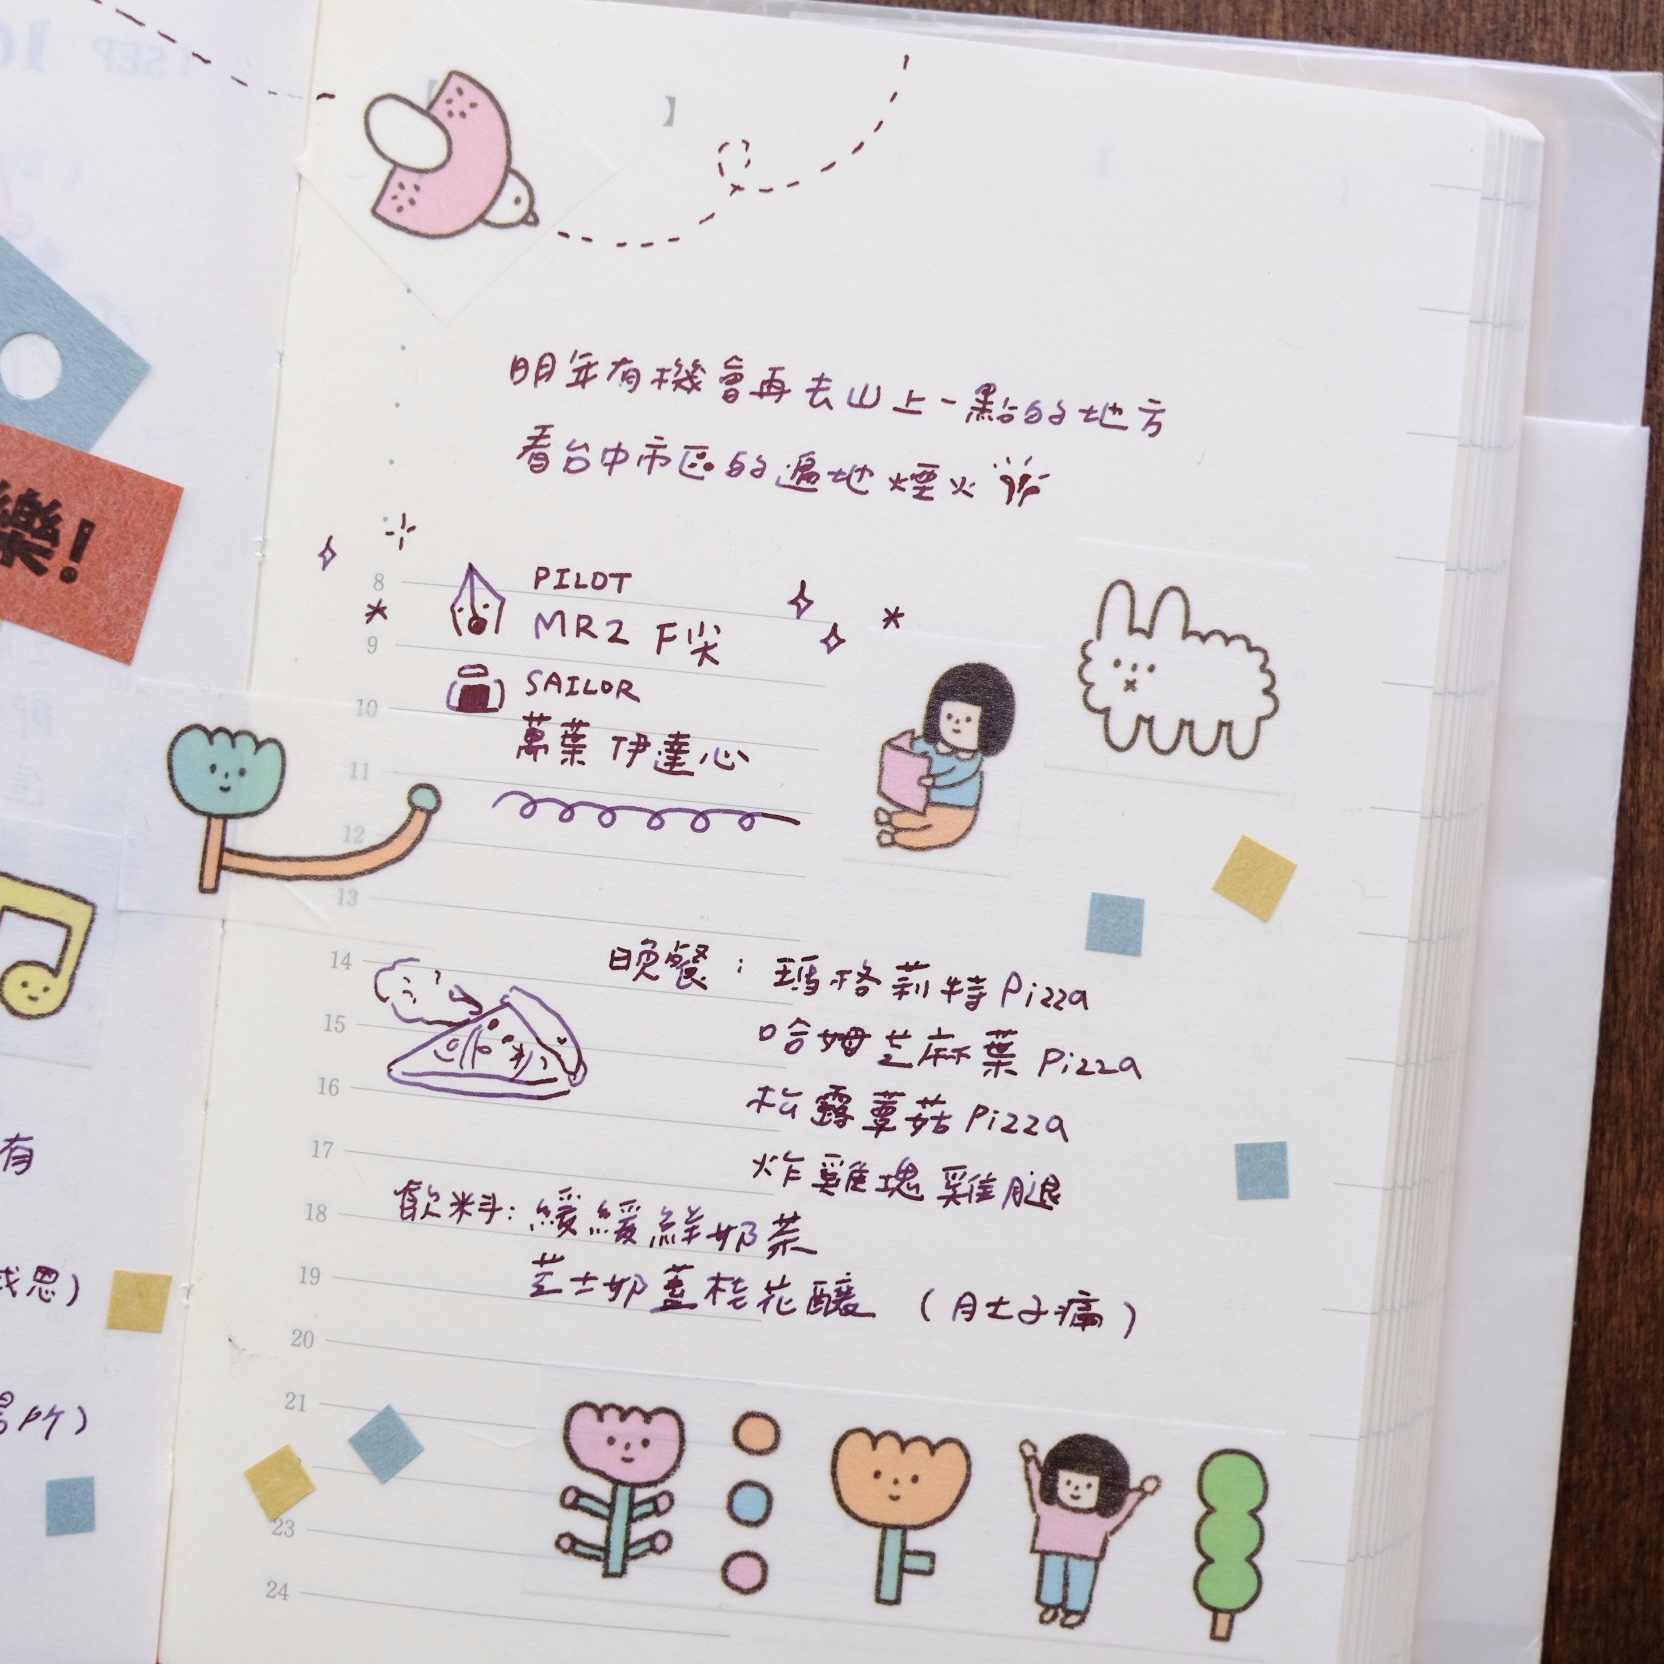 樂!
有
思)
所)
】
明年有機會再去山上一點的地方
看台中市區的遍地煙火
8
PILOT
MR2 F尖
9
SAILOR
10
萬葉 伊達心
11
12
13
14
晚餐：瑪格莉特Pizza
15
哈姆芝麻葉 Pizza
16
松露蕈菇Pizza
17
炸雞塊 雞腿
18
飲料：緩緩鮮奶茶
19
芝士奶蓋桂花釀 （肚子痛）
20
21
23
24